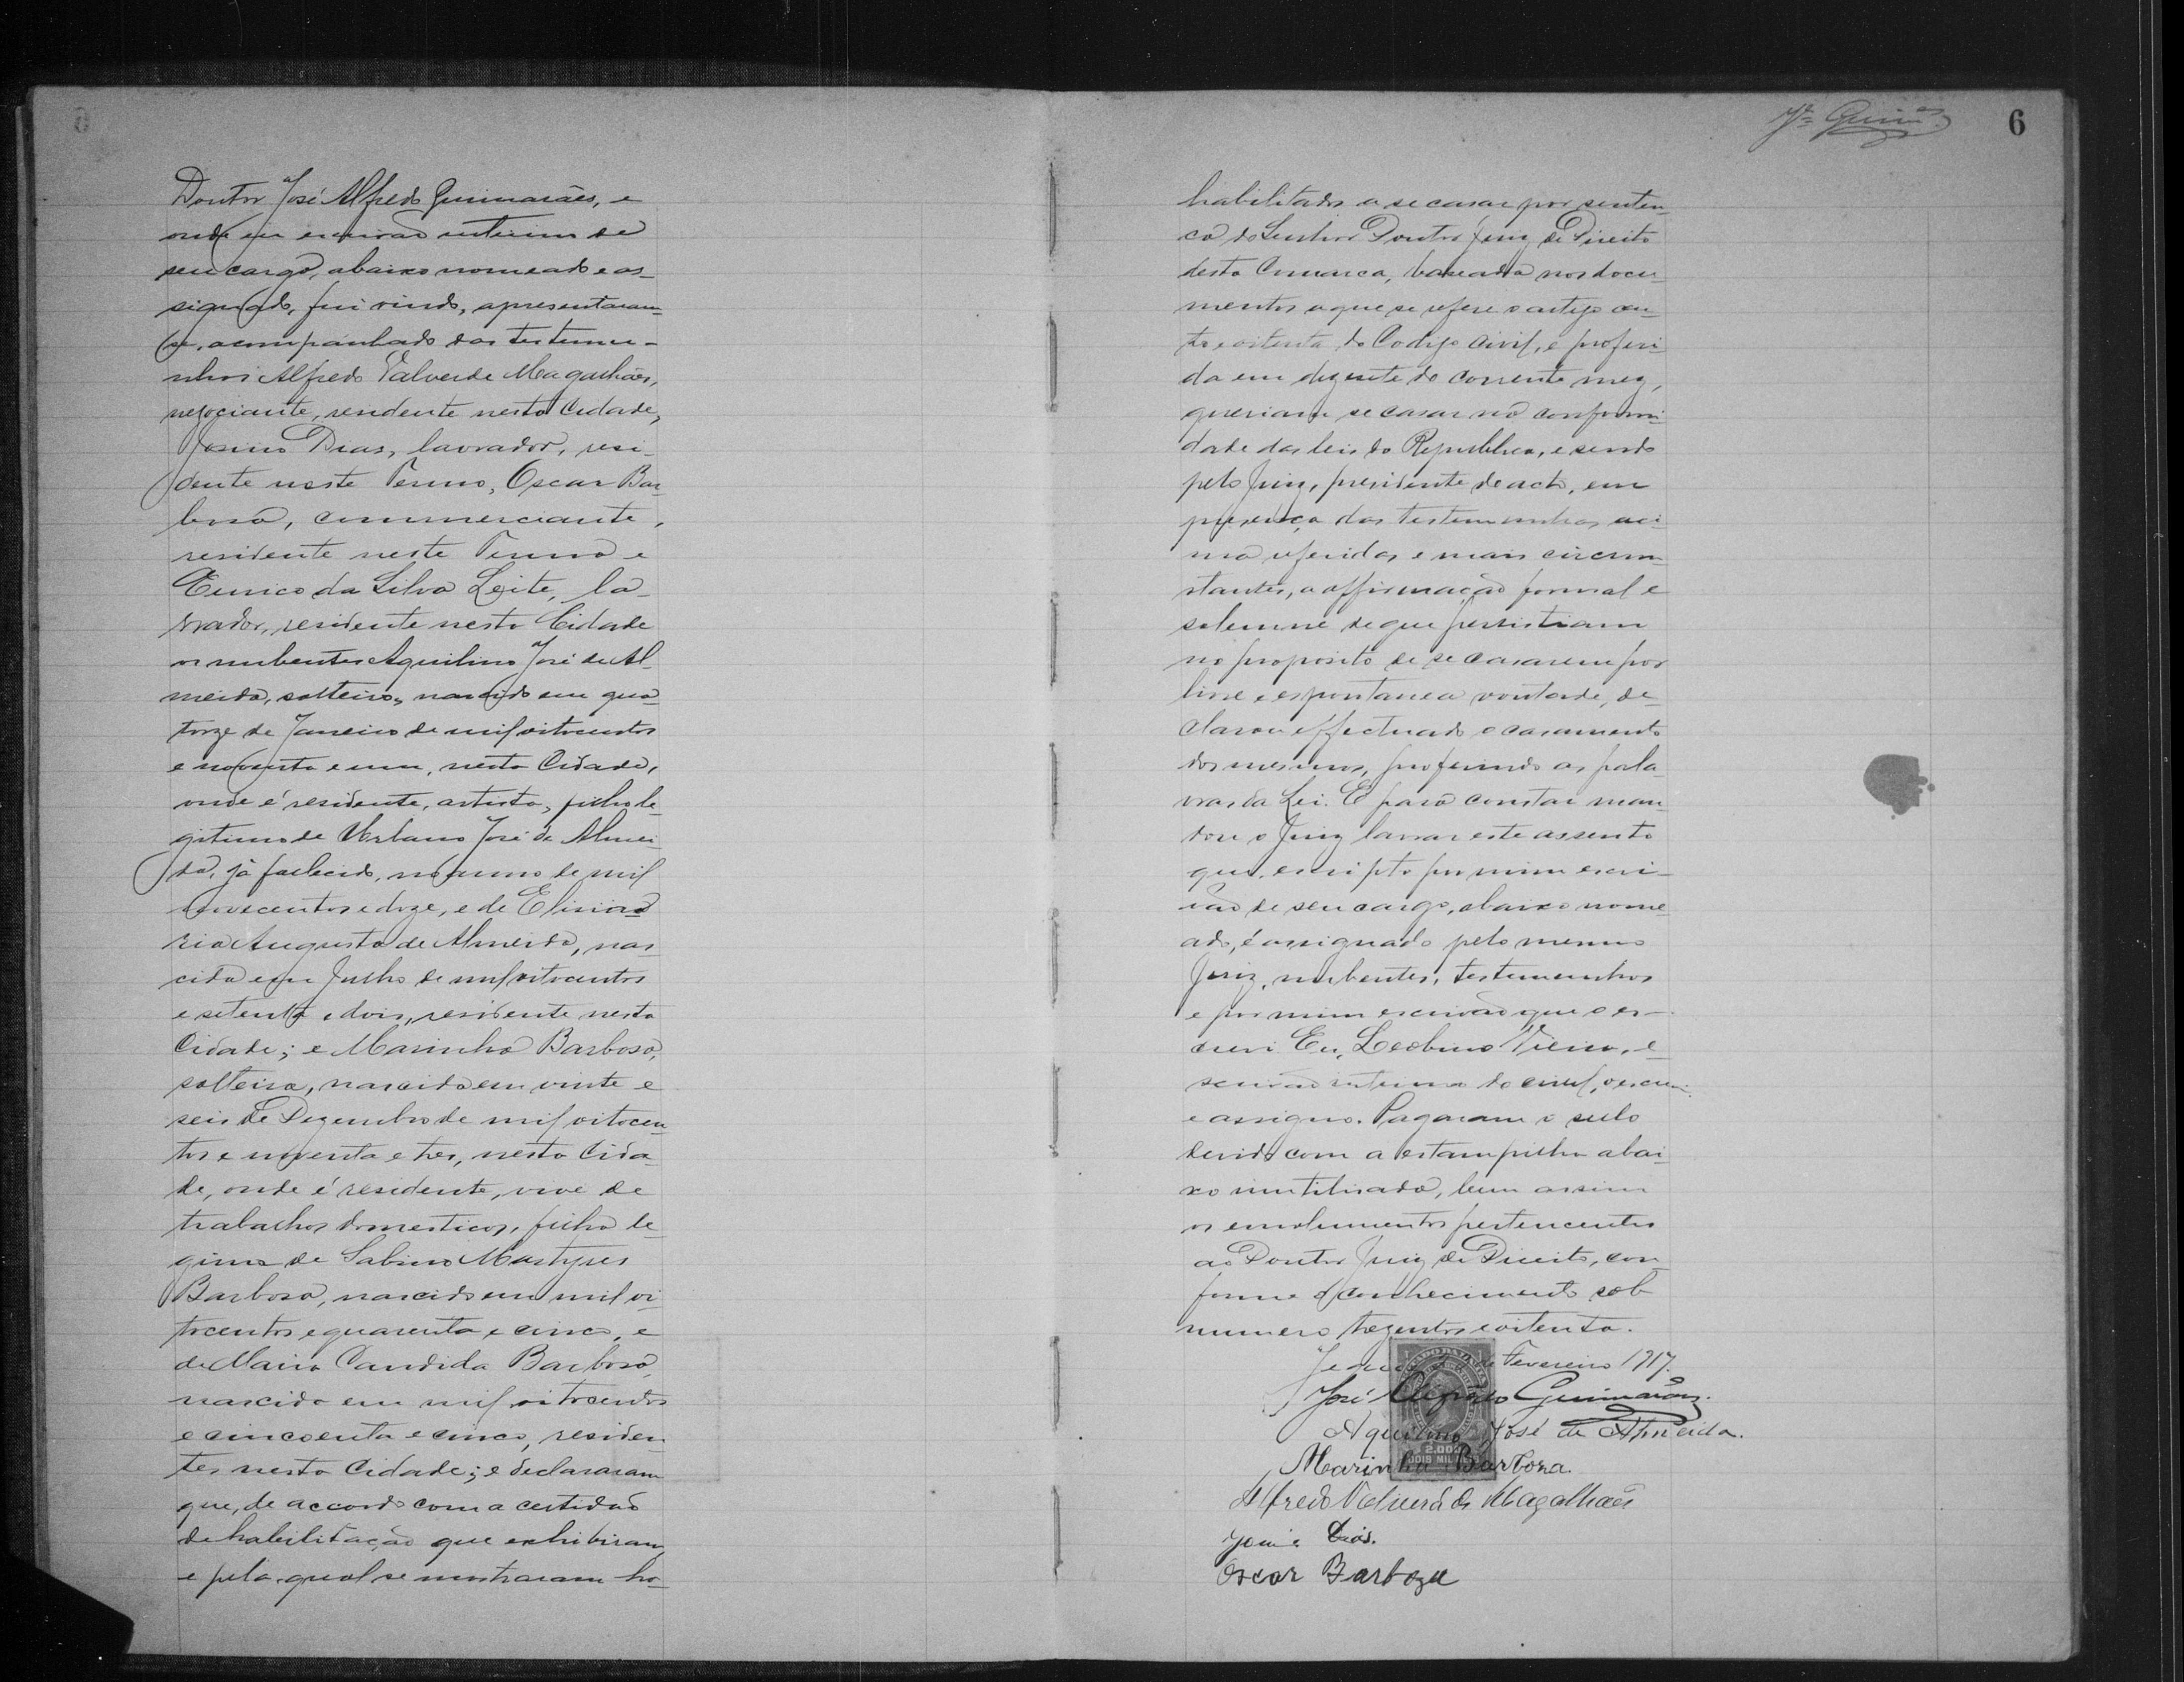 Doutor José Alfredo Guimarães, e
onde eu escrivão interino de
seu cargo, abaixo nomeado e as-
signado, fui vindo, apresentaram
se, acompanhado das testemu-
nhas Alfredo Valverde Magalhães,
negociante, residente nesta Cidade,
Dias, lavrador, resi-
dente neste Termo, Oscar Bar-
bosa, commerciante,
residente neste Termo e
Eurico da Silva Leite, la-
vrador, residente nesta Cidade
os nubentes Aquilino José de Al-
meida, solteiro, nascido em qua-
torze de Janeiro de mil oitocentos
e noventa e um, nesta Cidade,
onde é residente, artista, filho le-
gitimo de Urbano José de Almei-
da, já fallecido, no anno de mil
novecentos e doze, e de
Augusta de Almeida, nas-
cida em Julho de mil oitocentos
e setenta e dois, residente nesta
Cidade; e Marinha Barbosa,
solteira, nascida em vinte e
seis de Dezembro de mil oitocen-
tos e noventa e tres, nesta Cida-
de, onde é residente, vive de
trabalhos domesticos, filha le-
gima de Sabino Martyres
Barbosa, nascido em mil oi-
tocentos e quarenta e cinco, e
de Maria Candida Barbosa,
nascida em mil oitocentos
e cincoenta e cinco, residen-
tes nesta Cidade; e declararam
que, de accordo com a certidão
de habilitação que exhibiram,
e pela qual se mostraram ha-
6
habilitados a se casar por senten-
ça do Senhor Doutor Juiz de Direito
desta Comarca, baseada nos docu-
mentos a que se refere o artigo cen-
to e oitenta do Codigo Civil, e proferi-
da em dezesete do corrente mez,
queriam se casar na conformi-
dade das leis da Republica, e sendo
pelo Juiz, presidente do acto, em
presença das testemunhas aci-
ma referidas e mais circum-
stantes, a affirmação formal e
solemne de que persistiam
no proposito de se casarem por
livre e espontanea vontade, de-
clarou effectuado o casamento
dos mesmos, proferindo as pala-
vras da Lei. E para constar man-
dou o Juiz lavrar este assento
que, escripto por mim escri-
vão de seu cargo, abaixo nome-
ado, é assignado pelo mesmo
Juiz, nubentes, testemunhas
e por mim escrivão que o es-
crevi. Eu, Leobino Vieira, e-
scrivão interino do civil, o escrevi
e assigno. Pagaram o sello
devido com a estampilha abai-
xo inutilisada, bem assim
os emolumentos pertencentes
ao Doutor Juiz de Direito, con-
forme o conhecimento sob
numero trezentos e oitenta.
de Fevereiro 1917.
José Alfredo Guimarães.
Aquilino José de Almeida.
Marinha Barboza.
Alfredo Valverde de Magalhães
Dias.
Oscar Barboza
2.000
DOIS MIL